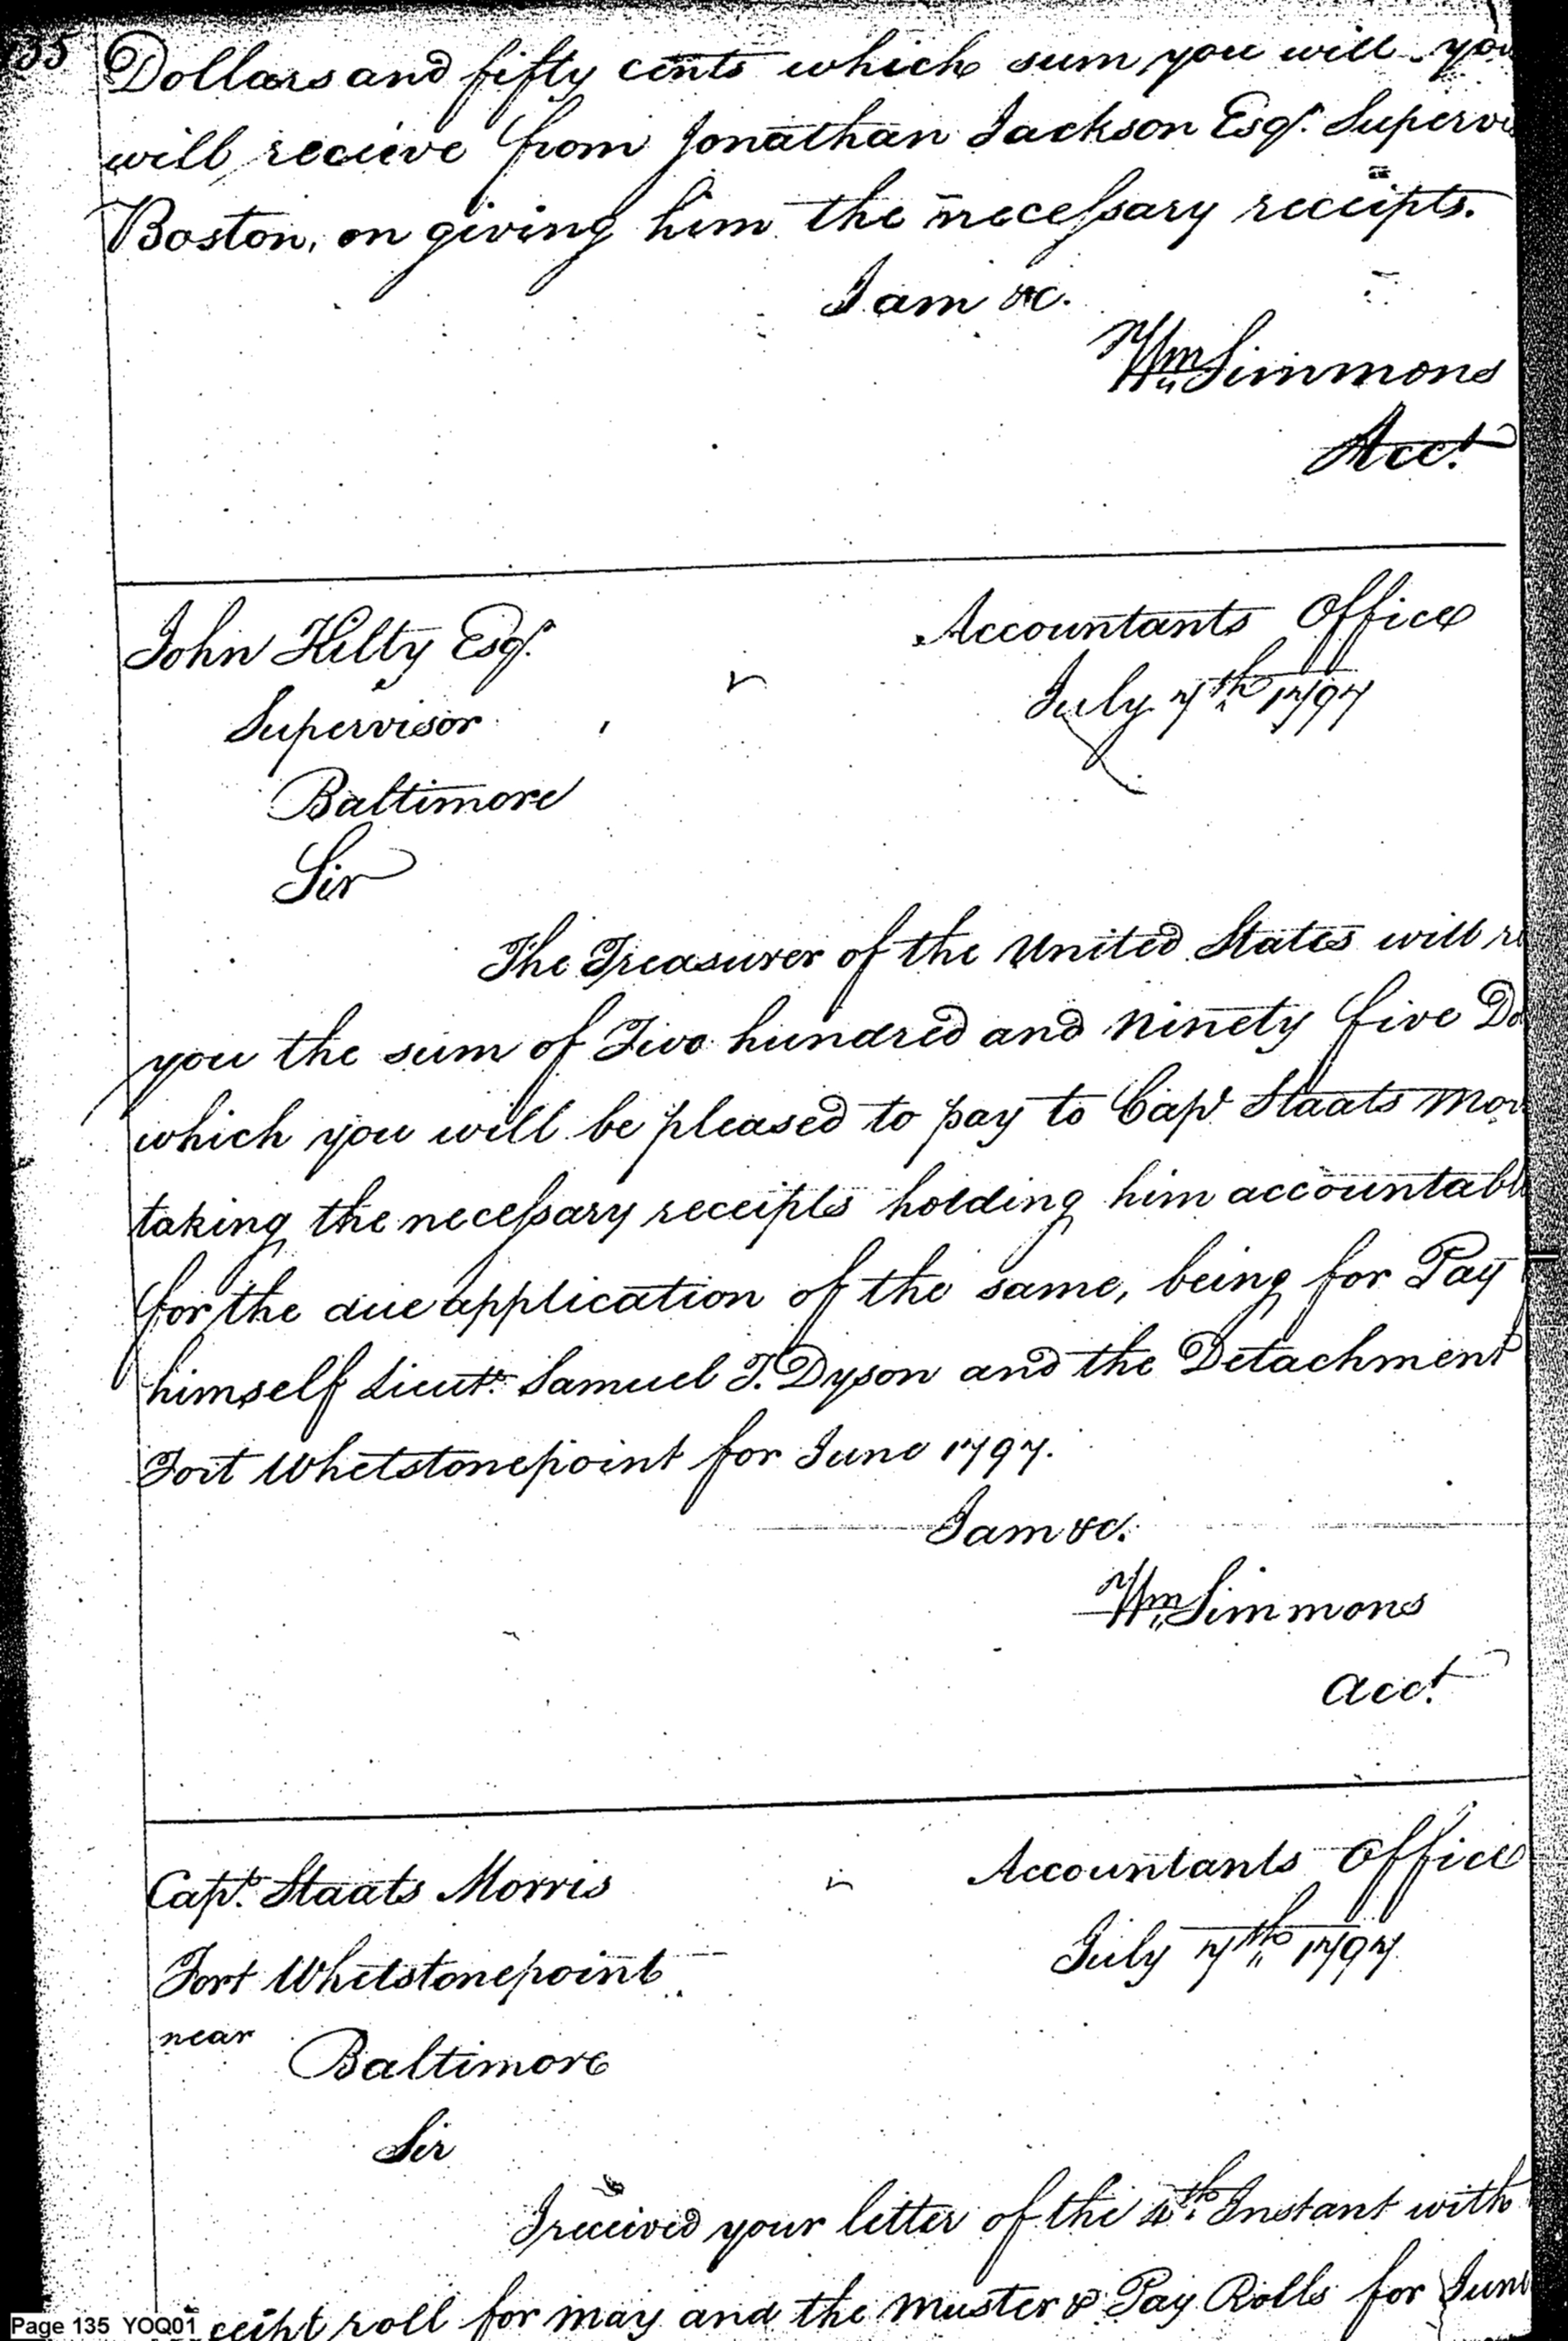 135
Dollars and fifty cents which sum you will you
will recieve from Jonathan Jackson Esqr. Supervi
Boston, on giving him the necessary receipts.
I am &c.
Wm Simmons
Acct.
John Kilty Esqr.
Accountants Office
July 7th 1797
Supervisor
Baltimore
Sir
The Treasurer of the United States will re
you the sum of Two hundred and ninety five Do
which you will be pleased to pay to Capt Staats Mor
taking the necessary receipts holding him accountabl
for the due application of the same, being for Pay
himself Lieutt. Samuel T. Dyson and the Detachment
Fort Whetstonepoint for June 1797.
I am &c.
Wm Simmons
acct.
Capt. Staats Morris
Accountants Office
Fort Whetstonepoint
July 7th 1797
near
Baltimore
Sir
I received your letter of the 4th Instant with
ceipt roll for may and the muster & Pay Rolls for June
Page 135 YOQ01